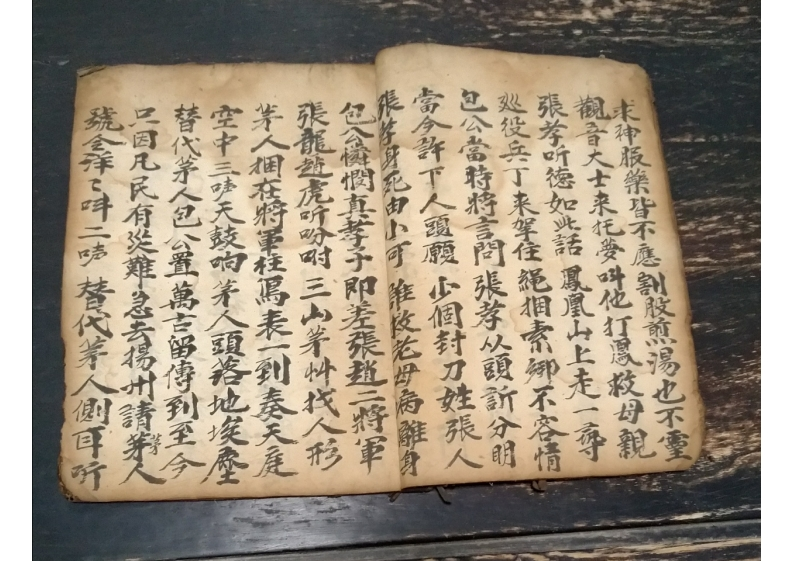 求神服藥皆不應割股煎湯也不靈
觀音大士來托夢叫他打鳳救母親
張孝听德如此話鳳凰山上走一尋
廵役兵丁來拏住繩捆索綁不容情
包公當時將言問張孝从頭訴分明
當今許下人頭願少個封刀姓張人
張孝身死由小可誰救老母病離身
包公憐憫真孝子即差張趙二將軍
張龍趙虎听吩咐三山茅艸找人形
茅人捆在將軍柱馬表一到奏天庭
空中三呌天鼓响茅人頭落地埃塵
替代茅人包公置萬古留傳到至今
只因凡民有災難急去揚州請茅人
茅
號令洋々呌二 替代茅人側耳听